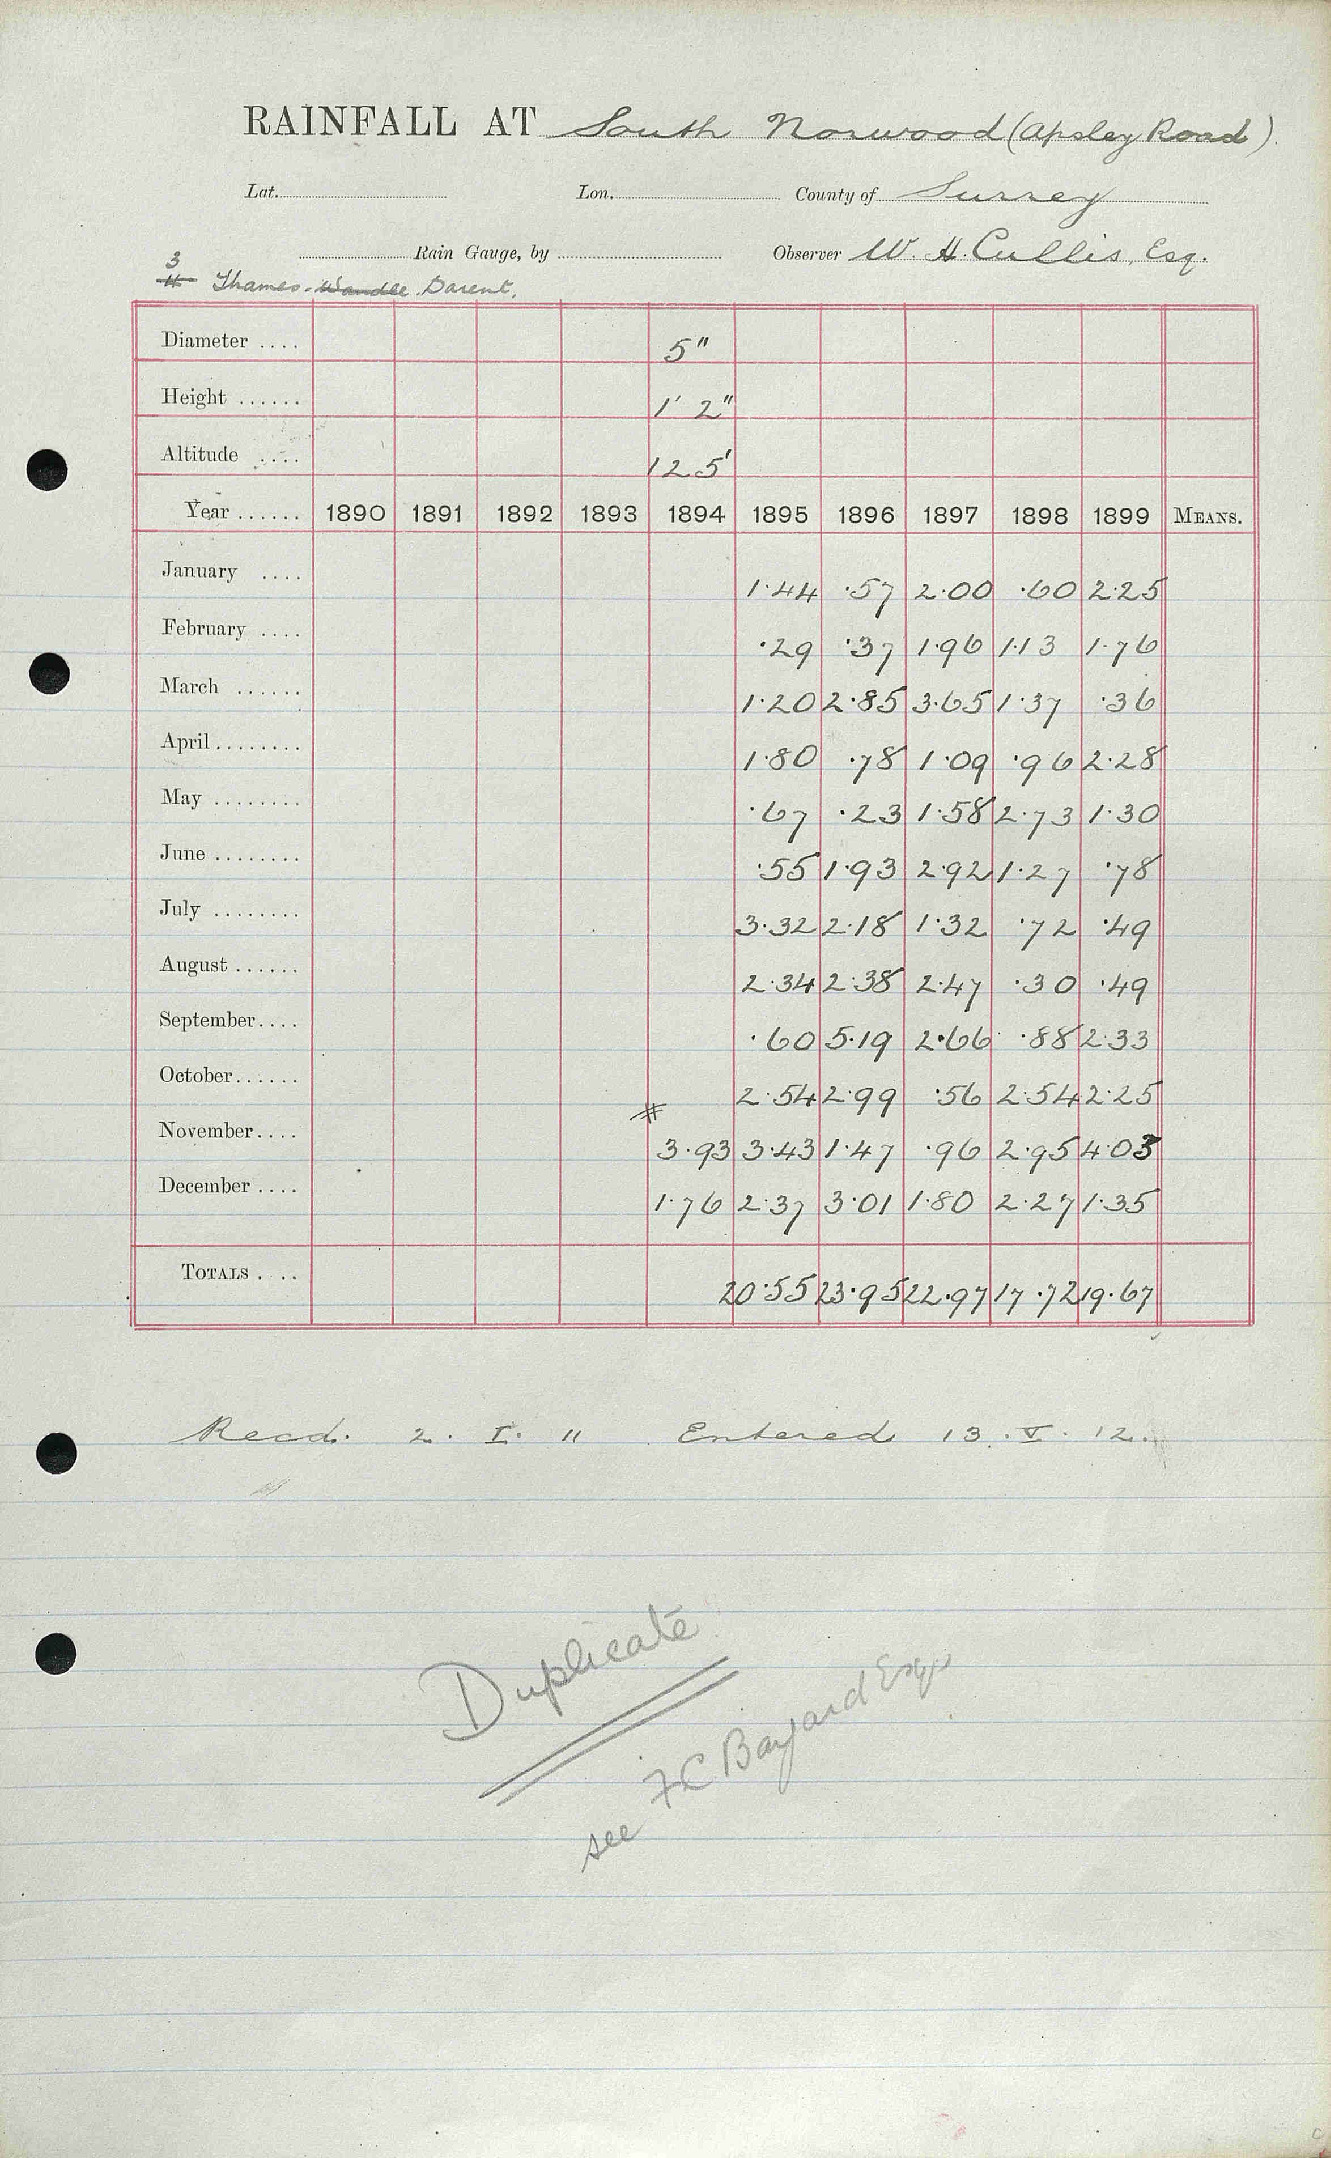 RAINFALL AT South Norwood (Apsley Road).
Lat. Lon. County of Surrey
Rain Gauge, by Observer W. H. Cullis, Esq.
3
4 Thames-Wandle Darent.
Diameter .... 5"
Height ...... 1' 2"
Altitude .... 125'
Year ...... 1890 1891 1892 1893 1894 1895 1896 1897 1898 1899 MEANS.
January .... 1.44 .57 2.00 .60 2.25
February .... .29 .37 1.96 1.13 1.76
March ...... 1.20 2.85 3.65 1.37 .36
April........ 1.80 .78 1.09 .96 2.28
May ........ .67 .23 1.58 2.73 1.30
June ........ .55 1.93 2.92 1.27 .78
July ........ 3.32 2.18 1.32 .72 .49
August ...... 2.34 2.38 2.47 .30 .49
September.... .60 5.19 2.66 .88 2.33
October...... 2.54 2.99 .56 2.54 2.25
November.... # 3.93 3.43 1.47 .96 2.95 4.03
December .... 1.76 2.37 3.01 1.80 2.27 1.35
TOTALS .... 20.55 23.95 22.97 17.72 19.67
Recd. 2. I. 11 Entered 13. V. 12.
Duplicate
see F C Bayard Esqr